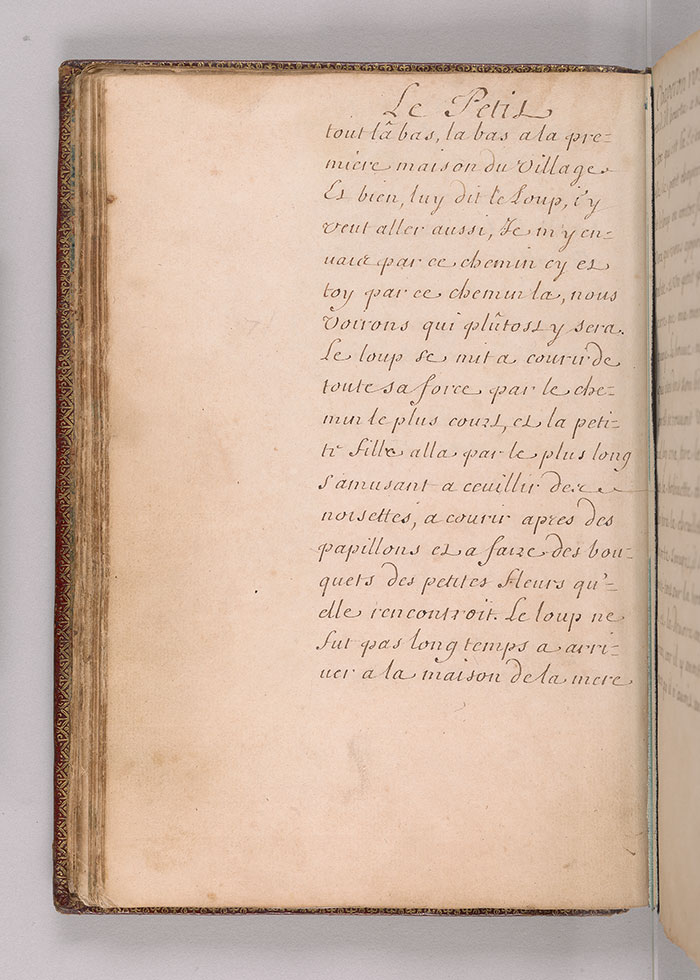 Le Petit
tout lâ bas, la bas a la pre-
miere maison du Village.
Et bien, luy dit le Loup, i'y
veut aller aussi, Je m'y en-
vaire par ce chemin cy et
toy par ce chemin la, nous
Voirons qui plûtost y sera.
Le loup se mit a courir de
toute sa force par le che-
min le plus court, et la peti-
te fille alla par le plus long
s'amusant a ceuillir des
noisettes, a courir apres des
papillons et a faire des bou-
quets des petites fleurs qu'-
elle rencontroit. Le loup ne
fut pas long temps a arri-
uer a la maison de la mere